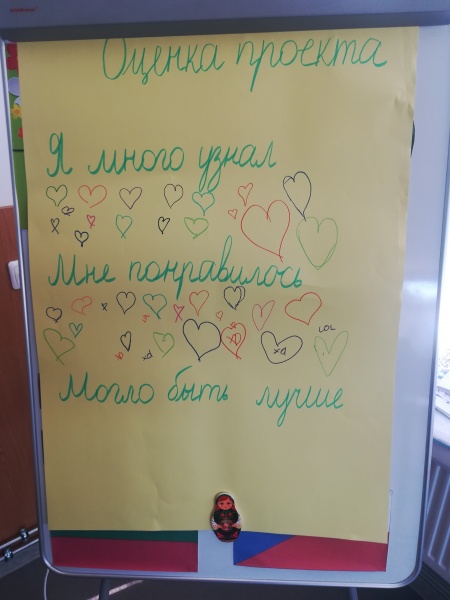 Оценка проекта
Я много узнал
Мне понравилось
xD
LOL
xD
xD
xD
Могло быть лучше